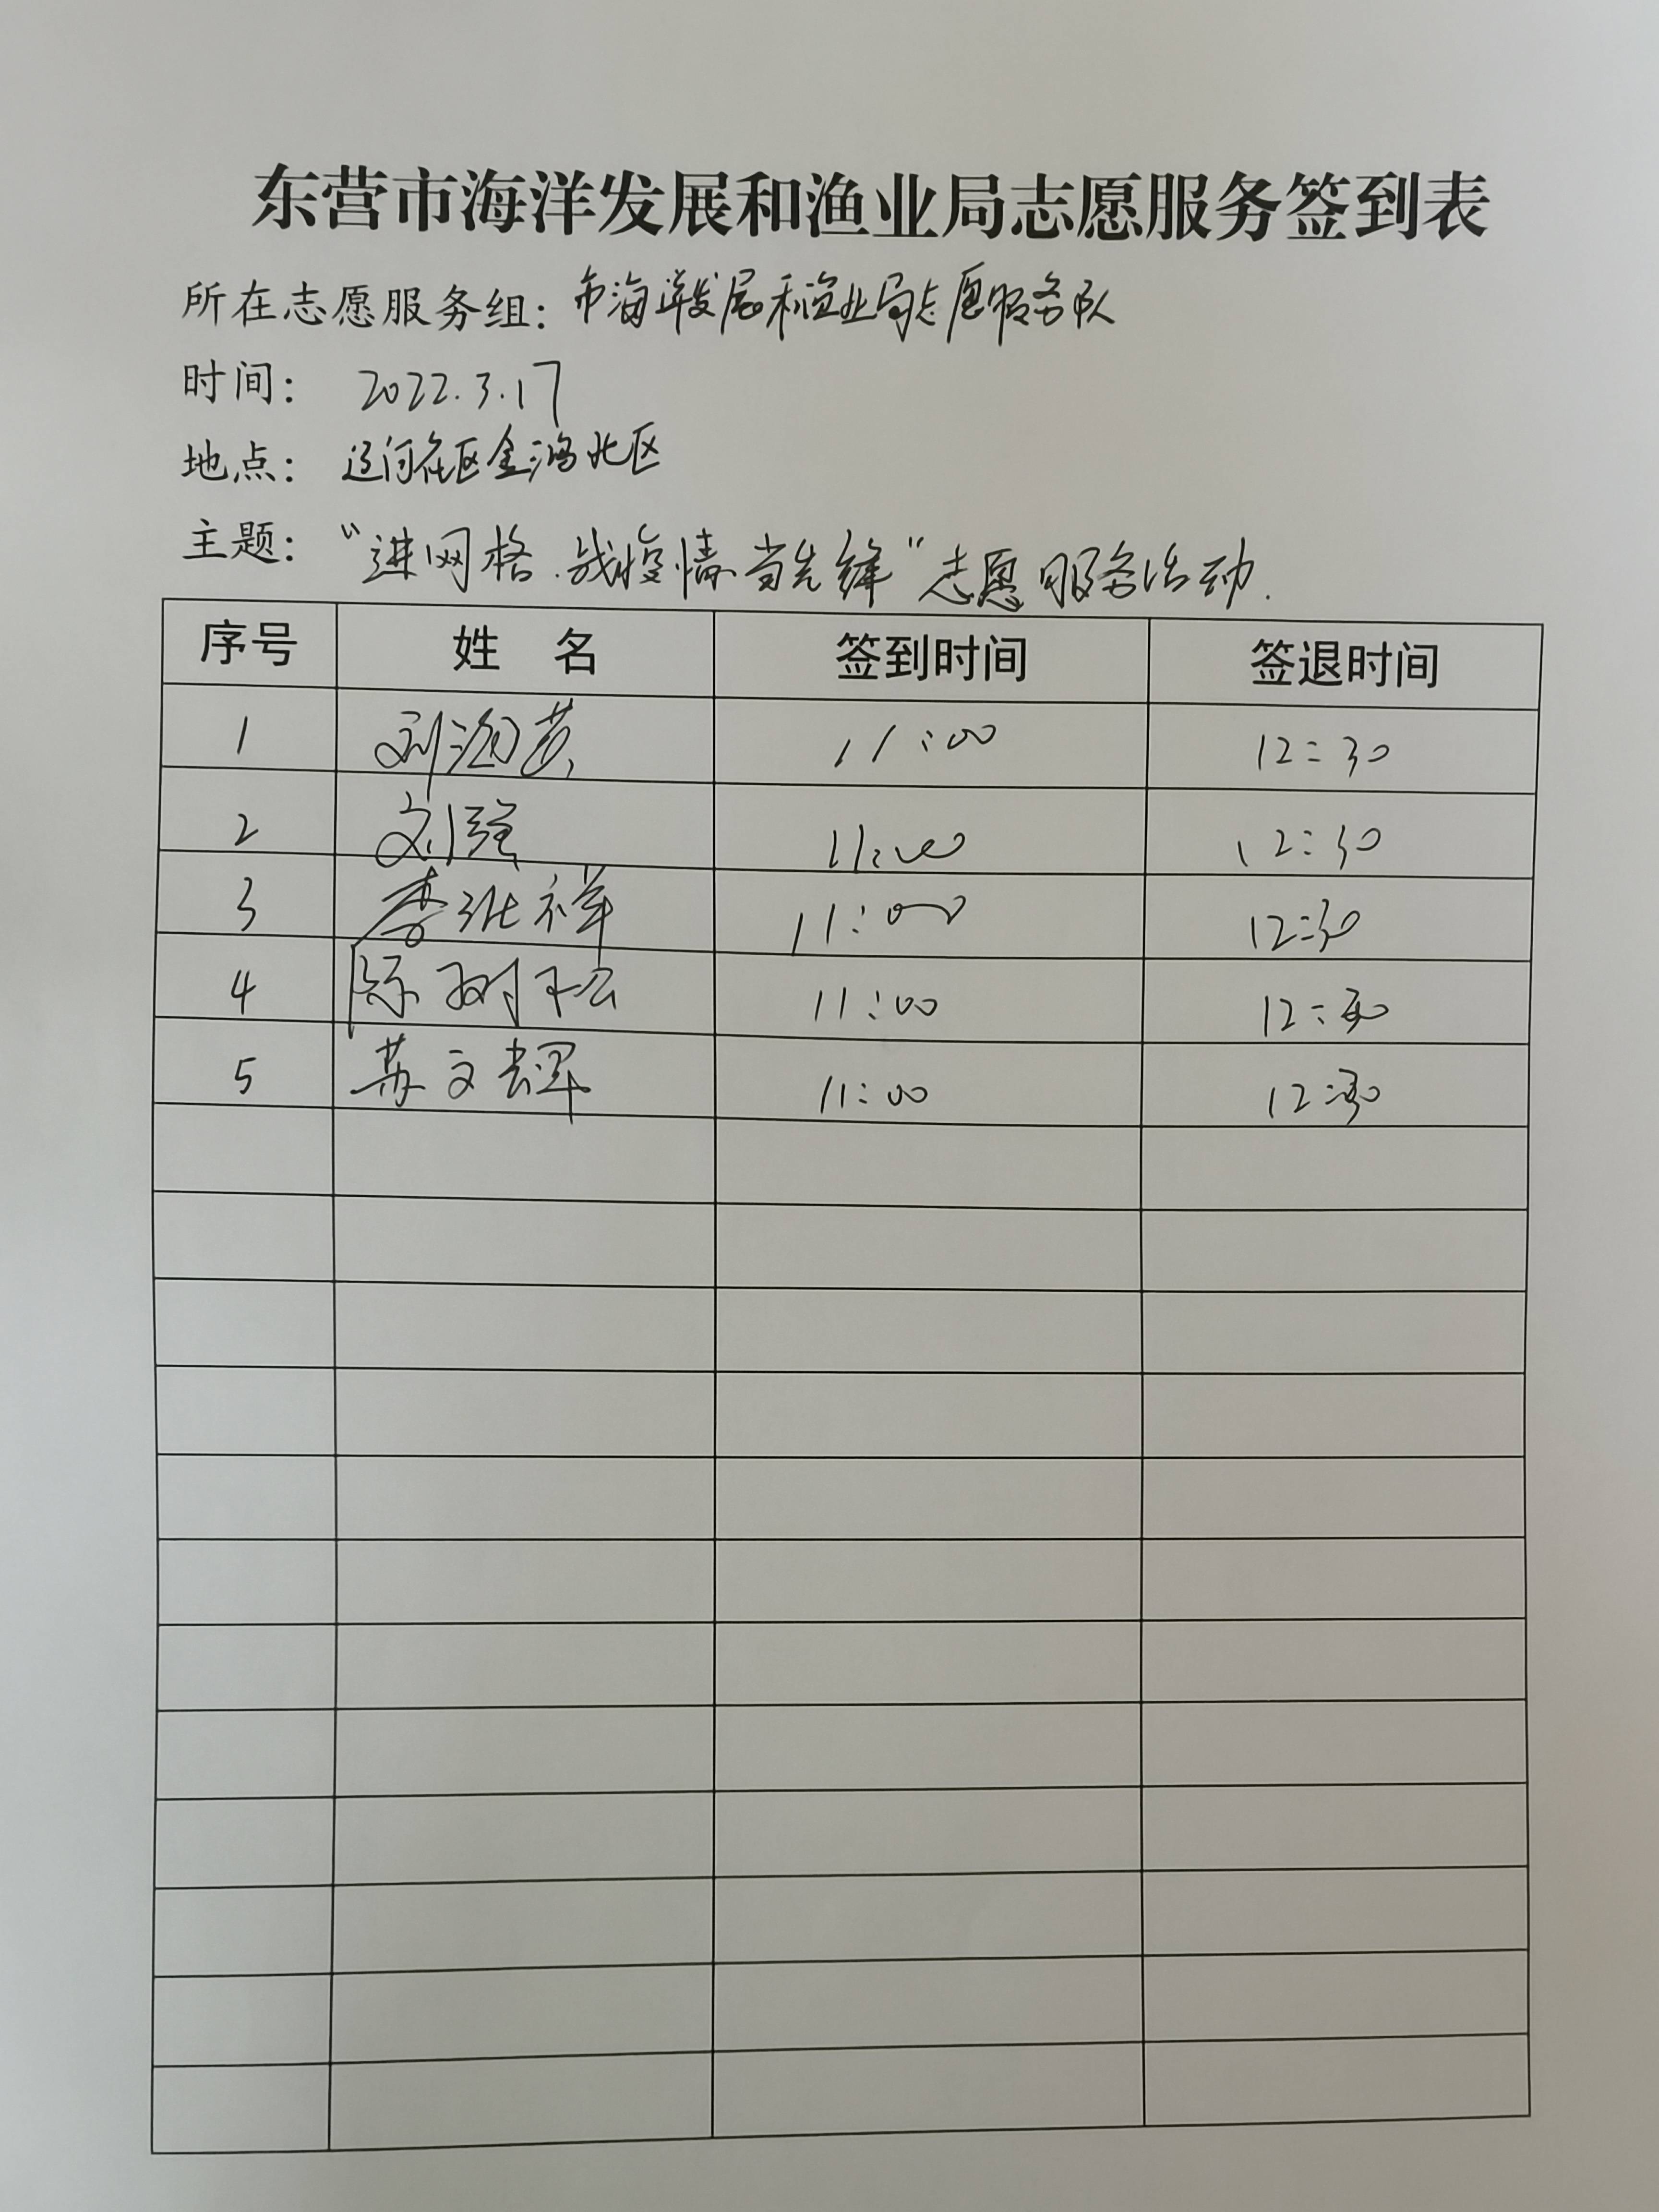 东营市海洋发展和渔业局志愿服务签到表
所在志愿服务组：市海洋发展和渔业局志愿服务队
时间： 2022.3.17
地点： 辽河社区金鸿北区
主题： “进网格.战疫情当先锋”志愿服务活动.
序号 姓 名 签到时间 签退时间
1 刘 11:00 12:30
2 刘强 11:00 12:30
3 李 祥 11:00 12:30
4 陈树松 11:00 12:30
5 苏文辉 11:00 12:30